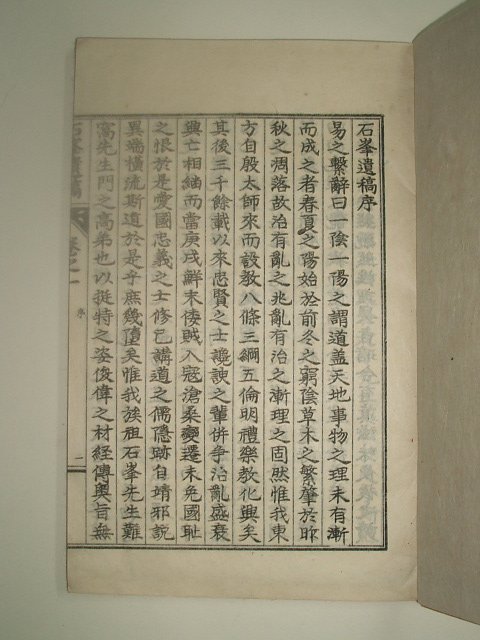 石峯遺稿序
易之繫辭曰一陰一陽之謂道盖天地事物之理未有漸
而成之者春夏之陽始於前冬之窮陰草木之繁肇於昨
秋之凋落故治有亂之兆亂有治之漸理之固然惟我東
方自殷太師來而設敎八條三綱五倫明禮樂敎化興矣
其後三千餘載以來忠賢之士讒諛之輩倂争治亂盛衰
興亡相紬而當庚戌鮮末倭賊入寇滄桑變遷未免國耻
之恨於是愛國忠義之士修己講道之儒隱跡自靖邪說
異端橫流斯道於是乎庶幾墮矣惟我族祖石峯先生難
窩先生門之高弟也以挺特之姿俊偉之材經傳奧旨無
石峯遺稿
序
一